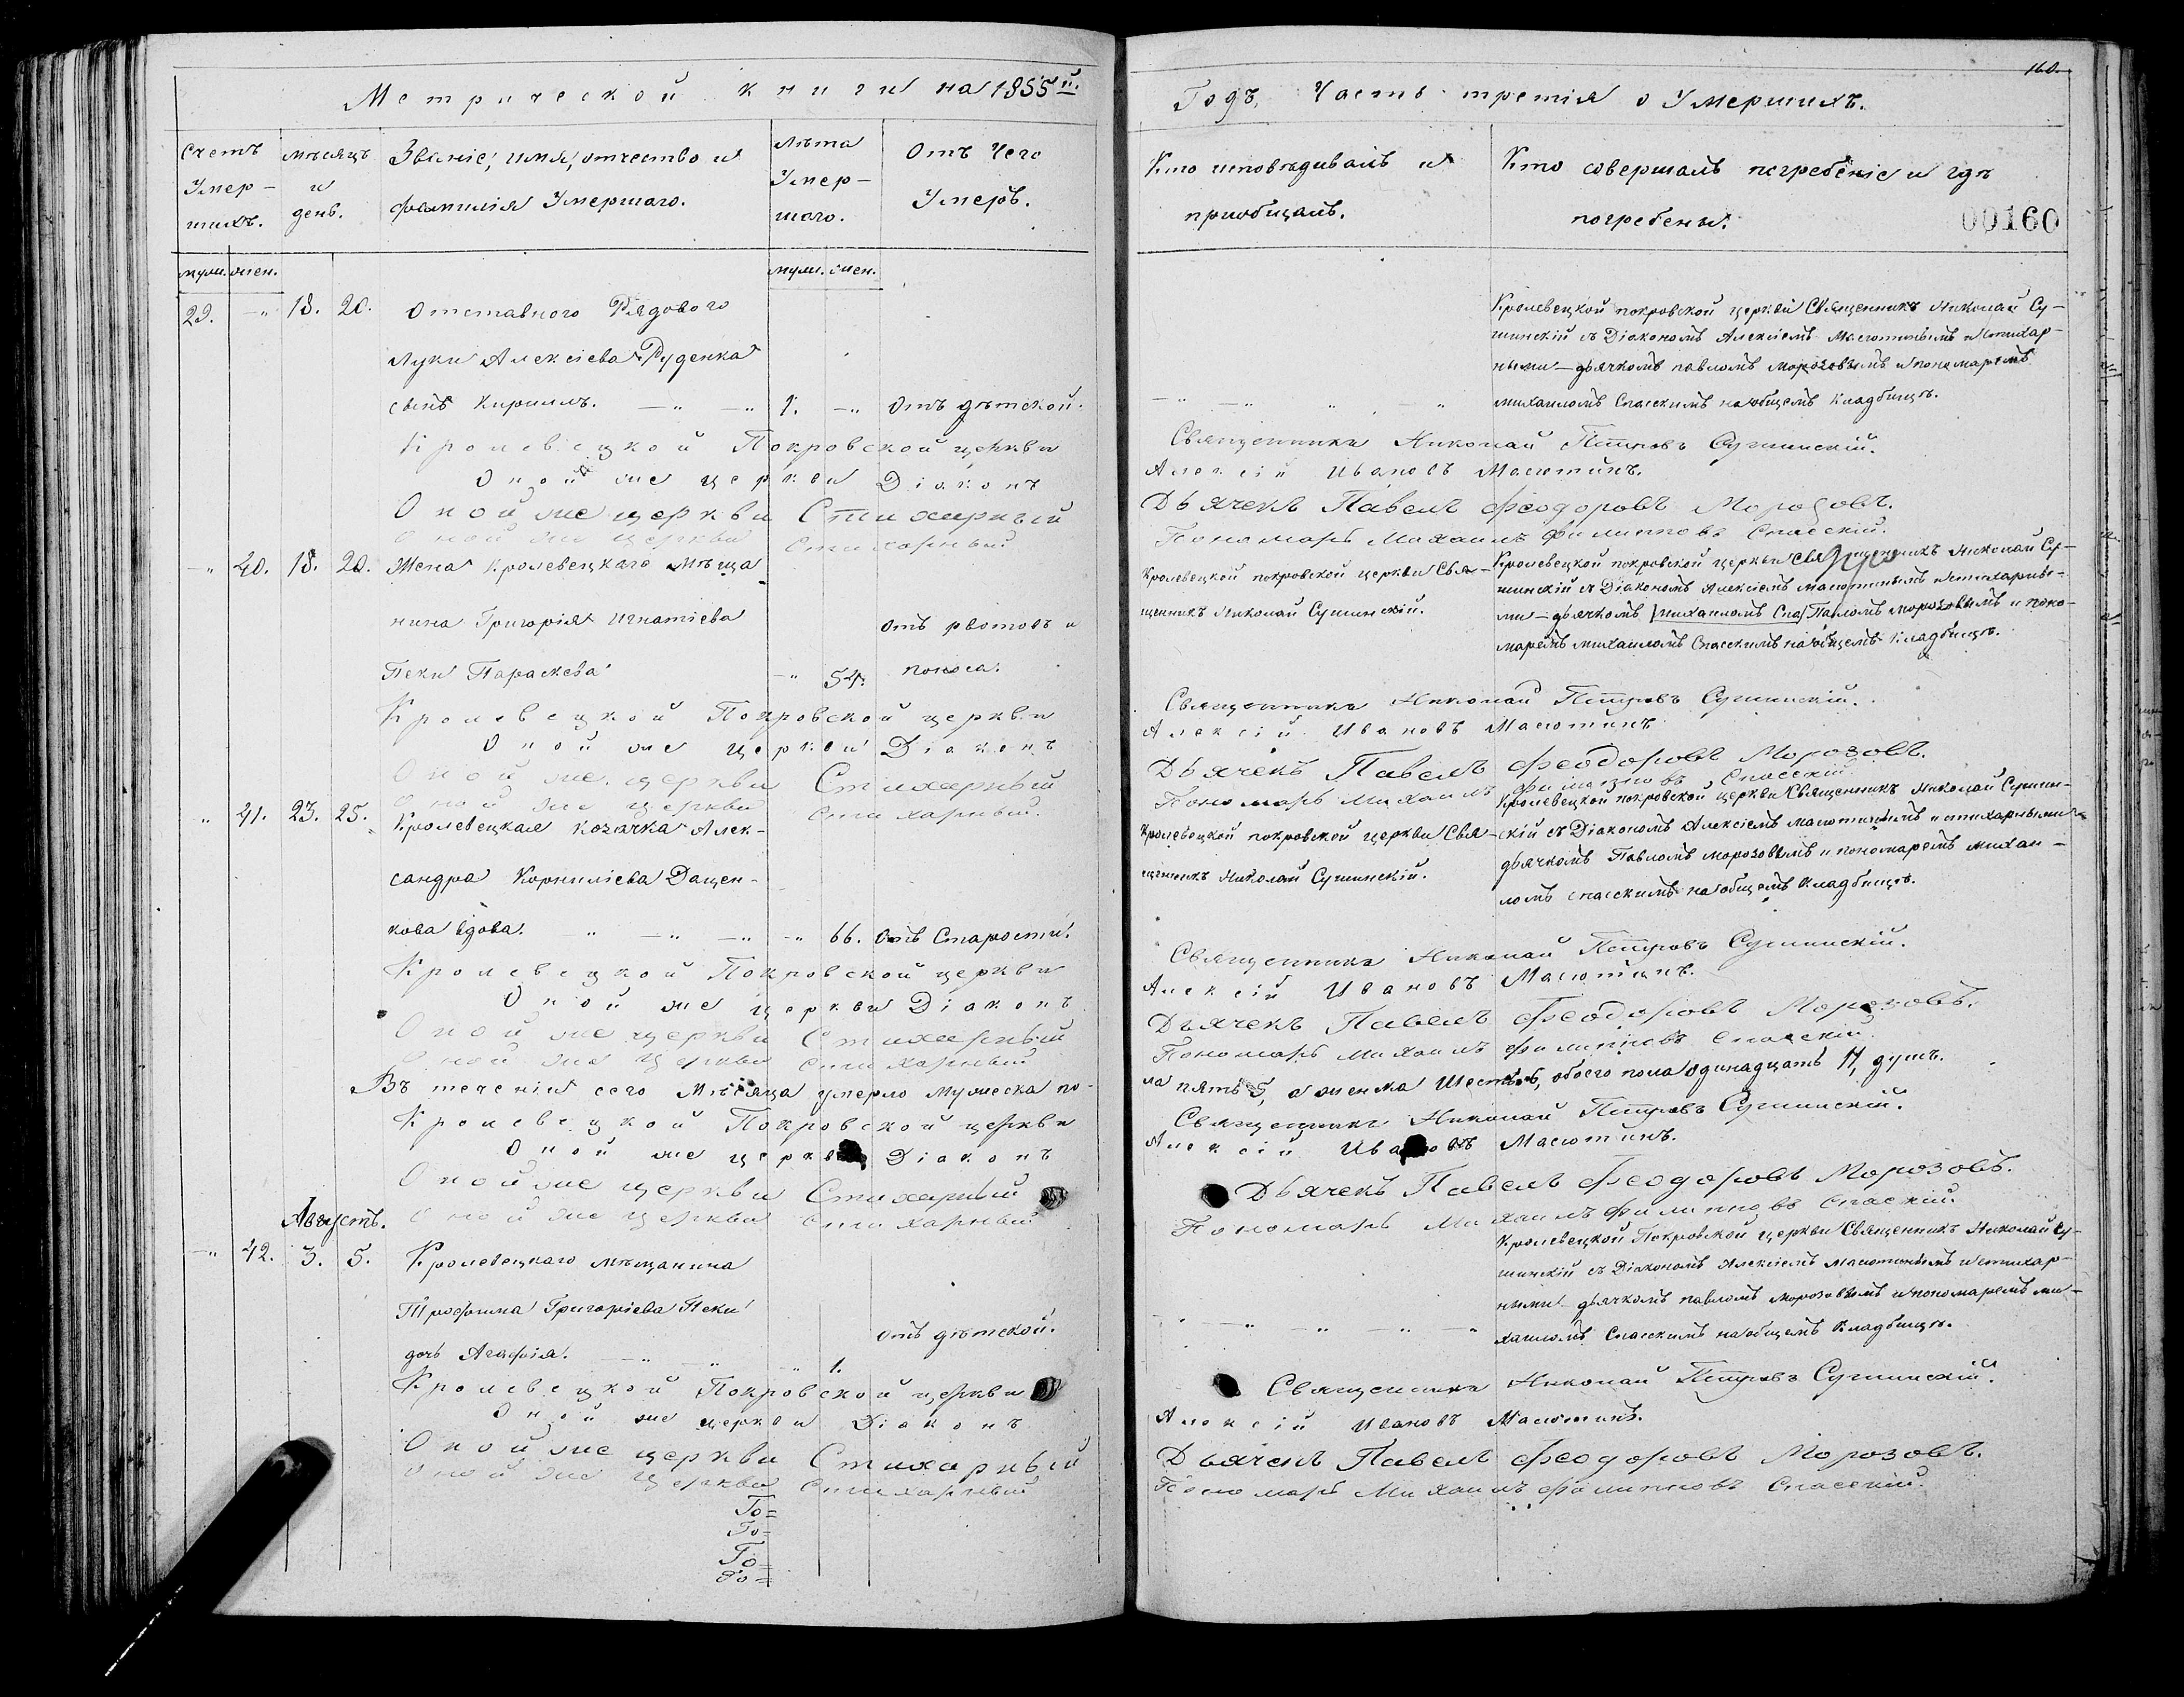 Метрической книги на 1855й.
Счетъ Умер-шихъ.
мѣсяцъ и день.
Званіе, имя, отчество и фамилія Умершаго.
Лѣта Умер-шаго.
Отъ Чего Умеръ.
муж. жен.
муж. жен.
29. -„ 18. 20. Отставного Рядового
Луки Алексіева Руденка
сынъ Кириллъ. -„ -„ 1. -„ Отъ дѣтской.
Кролевецкой Покровской церкви
Оной же церкви Діаконъ
Оной же церкви Стихарный
Оной же церкви Стихарный
-„ 40. 18. 20. Жена Кролевецкаго Мѣща-
нина Григорія Игнатіева отъ рвотовъ и
Пеки Параскева -„ 54. поноса.
Кролевецкой Покровской церкви
Оной же церкви Діаконъ
Оной же церкви Стихарный
Оной же церкви Стихарный.
„ 41. 23. 25. Кролевецкая козачка Алек-
сандра Корниліева Дацен-
кова вдова. „ -„ -„ -„ 66. Отъ Старости.
Кролевецкой Покровской церкви
Оной же церкви Діаконъ
Оной же церкви Стихарный
Оной же церкви Стихарный
Въ теченіи сего Мѣсяца умерло мужеска по-
Кролевецкой Покровской церкви
Оной же церкви Діаконъ
Оной же церкви Стихарный
Августъ. Оной же церкви Стихарный
-„ 42. 3. 5. Кролевецкаго мѣщанина
Трофима Григоріева Пеки
отъ дѣтской.
дочь Агафія. -„ „ -„ 1.
Кролевецкой Покровской церкви
Оной же церкви Діаконъ
Оной же церкви Стихарный
Оной же церкви Стихарный
Го=
Го=
Го=
Го=
160.
Годъ, Часть третія о Умершихъ.
Кто исповѣдивалъ и пріобщалъ.
Кто совершалъ погребеніе и гдѣ погребены.
00160
Кролевецкой покровской церкви Священникъ Николай Су-
шинскій съ Діакономъ Алексіемъ Масютинымъ и стихар-
ными - дьячкомъ павломъ морозовымъ и пономаремъ
михаиломъ Спасскимъ на общемъ кладбищѣ.
Священникъ Николай Петровъ Сушинскій.
Алексій Ивановъ Масютинъ.
Дьячекъ Павелъ Феодоровъ Морозовъ.
Пономарь Михаилъ Филипповъ Спасскій.
Кролевецкой покровской церкви Свя-
щенникъ Николай Сушинскій.
Кролевецкой покровской церкви Священникъ Николай Су-
шинскій съ Діакономъ Алексіемъ масютинымъ и стихарны-
ми - дьячкомъ михаиломъ Спас Павломъ морозовымъ и поно-
маремъ михаиломъ Спасскимъ на общемъ Кладбищѣ.
Священникъ Николай Петровъ Сушинскій.
Алексій Ивановъ Масютинъ
Дьячекъ Павелъ Феодоровъ Морозовъ.
Пономарь Михаилъ Филипповъ Спасскій.
Кролевецкой покровской церкви Свя-
щенникъ Николай Сушинскій.
Кролевецкой покровской церкви Священникъ Николай Сушин-
скій съ Діакономъ Алексіемъ масютинымъ и стихарными
дьячкомъ Павломъ морозовымъ и пономаремъ михаи-
ломъ спасскимъ на общемъ Кладбищѣ.
Священникъ Николай Петровъ Сушинскій.
Алексій Ивановъ Масютинъ.
Дьячекъ Павелъ Феодоровъ Морозовъ.
Пономарь Михаилъ Филипповъ Спасскій
ла пять 5, а женска Шесть 6, обоего пола одинадцать 11, душъ.
Священникъ Николай Петровъ Сушинскій.
Алексій Ивановъ Масютинъ.
Дьячекъ Павелъ Феодоровъ Морозовъ.
Пономарь Михаилъ Филипповъ Спаскій.
Кролевецкой Покровской церкви Священникъ Николай Су-
шинскій съ Діакономъ Алексіемъ масютинымъ и стихар-
ными - дьячкомъ павломъ морозовымъ и пономаремъ ми-
хаиломъ Спасскимъ на общемъ Кладбищѣ.
Священникъ Николай Петровъ Сушинскій.
Алексій Ивановъ Масютинъ.
Дьячекъ Павелъ Феодоровъ Морозовъ.
Пономарь Михаилъ Филипповъ Спасскій.